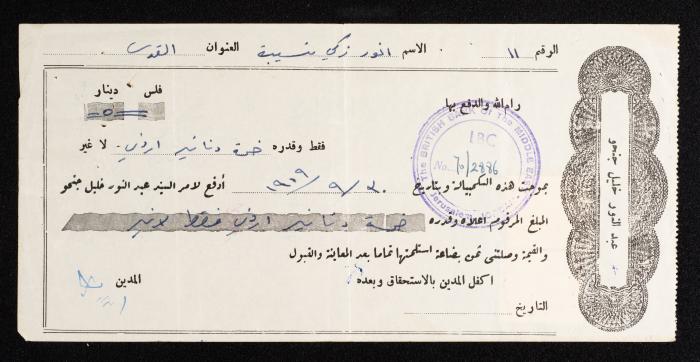 الرقم ١١ الاسم انور زكي نسيبة العنوان القدس
فلس دينار
-٥-
رام الله والدفع بها
فقط وقدره خمسة دنانير اردني لا غير
بموجب هذه الكمبيالة وبتاريخ ٣٠/٩/١٩٦٩ أدفع لامر السيد عبد النور خليل جنحو
المبلغ المرقوم اعلاه وقدره خمسة دنانير اردني فقط لا غير
والقيمة وصلتني ثمن بضاعة استلمتها تماما بعد المعاينة والقبول
اكفل المدين بالاستحقاق وبعده المدين
التاريخ
عبد النور خليل جنحو
The BRITISH BANK OF THE MIDDLE EAST
IBC
No. 70/2886
Jerusalem